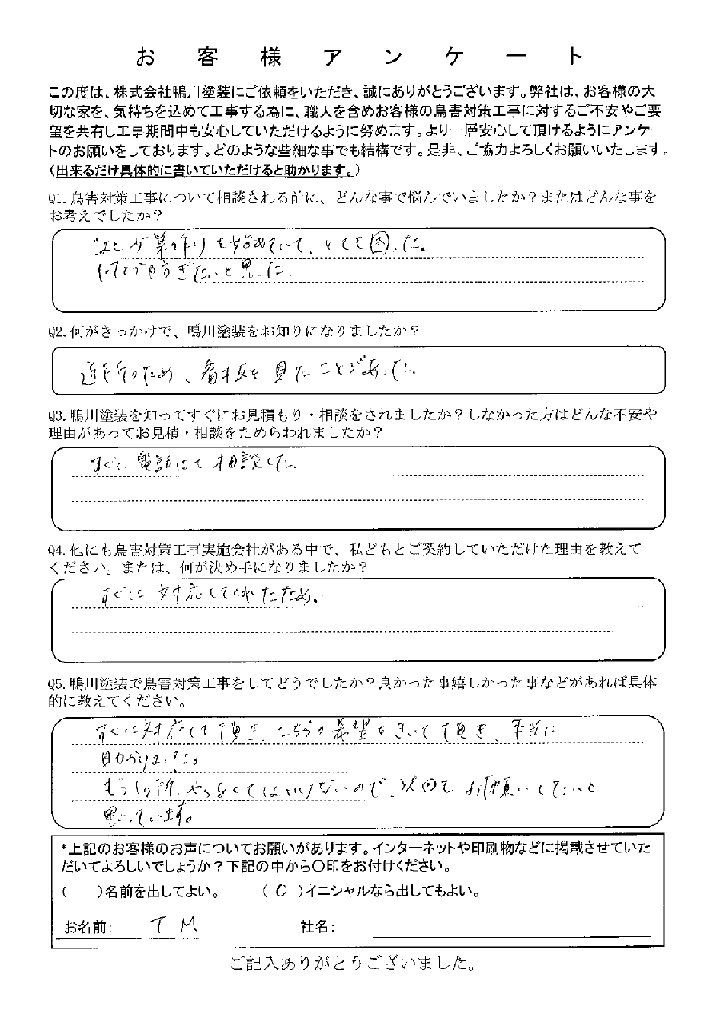 お客様アンケート
この度は、株式会社鴨川塗装にご依頼をいただき、誠にありがとうございます。弊社は、お客様の大
切な家を、気持ちを込めて工事する為に、職人を含めお客様の鳥害対策工事に対するご不安やご要
望を共有し工事期間中も安心していただけるように努めます。より一層安心して頂けるようにアンケー
トのお願いをしております。どのような些細な事でも結構です。是非、ご協力よろしくお願いいたします。
(出来るだけ具体的に書いていただけると助かります。)
Q1.鳥害対策工事について相談される前に、どんな事で悩んでいましたか？またはどんな事を
お考えでしたか？
はとが巣作りを始めていて、とても困った。
何とか防ぎたいと思った
Q2.何がきっかけで、鴨川塗装をお知りになりましたか？
近所のため、看板を見たことがあった
Q3.鴨川塗装を知ってすぐにお見積もり・相談をされましたか？しなかった方はどんな不安や
理由があってお見積・相談をためらわれましたか？
すぐに電話にて相談した
Q4.他にも鳥害対策工事実施会社がある中で、私どもとご契約していただけた理由を教えて
ください。または、何が決め手になりましたか？
すぐに対応してくれたため。
Q5.鴨川塗装で鳥害対策工事をしてどうでしたか？良かった事嬉しかった事などがあれば具体
的に教えてください。
すぐに対応して頂き、こちらの希望をきいて頂き、本当に
助かりました
もう1か所、やらなくてはいけないので、次回もお願いしたいと
思っています。
*上記のお客様のお声についてお願いがあります。インターネットや印刷物などに掲載させていた
だいてよろしいでしょうか？下記の中から〇印をお付けください。
( )名前を出してよい。 (〇)イニシャルなら出してもよい。
お名前: T M 社名:
ご記入ありがとうございました。